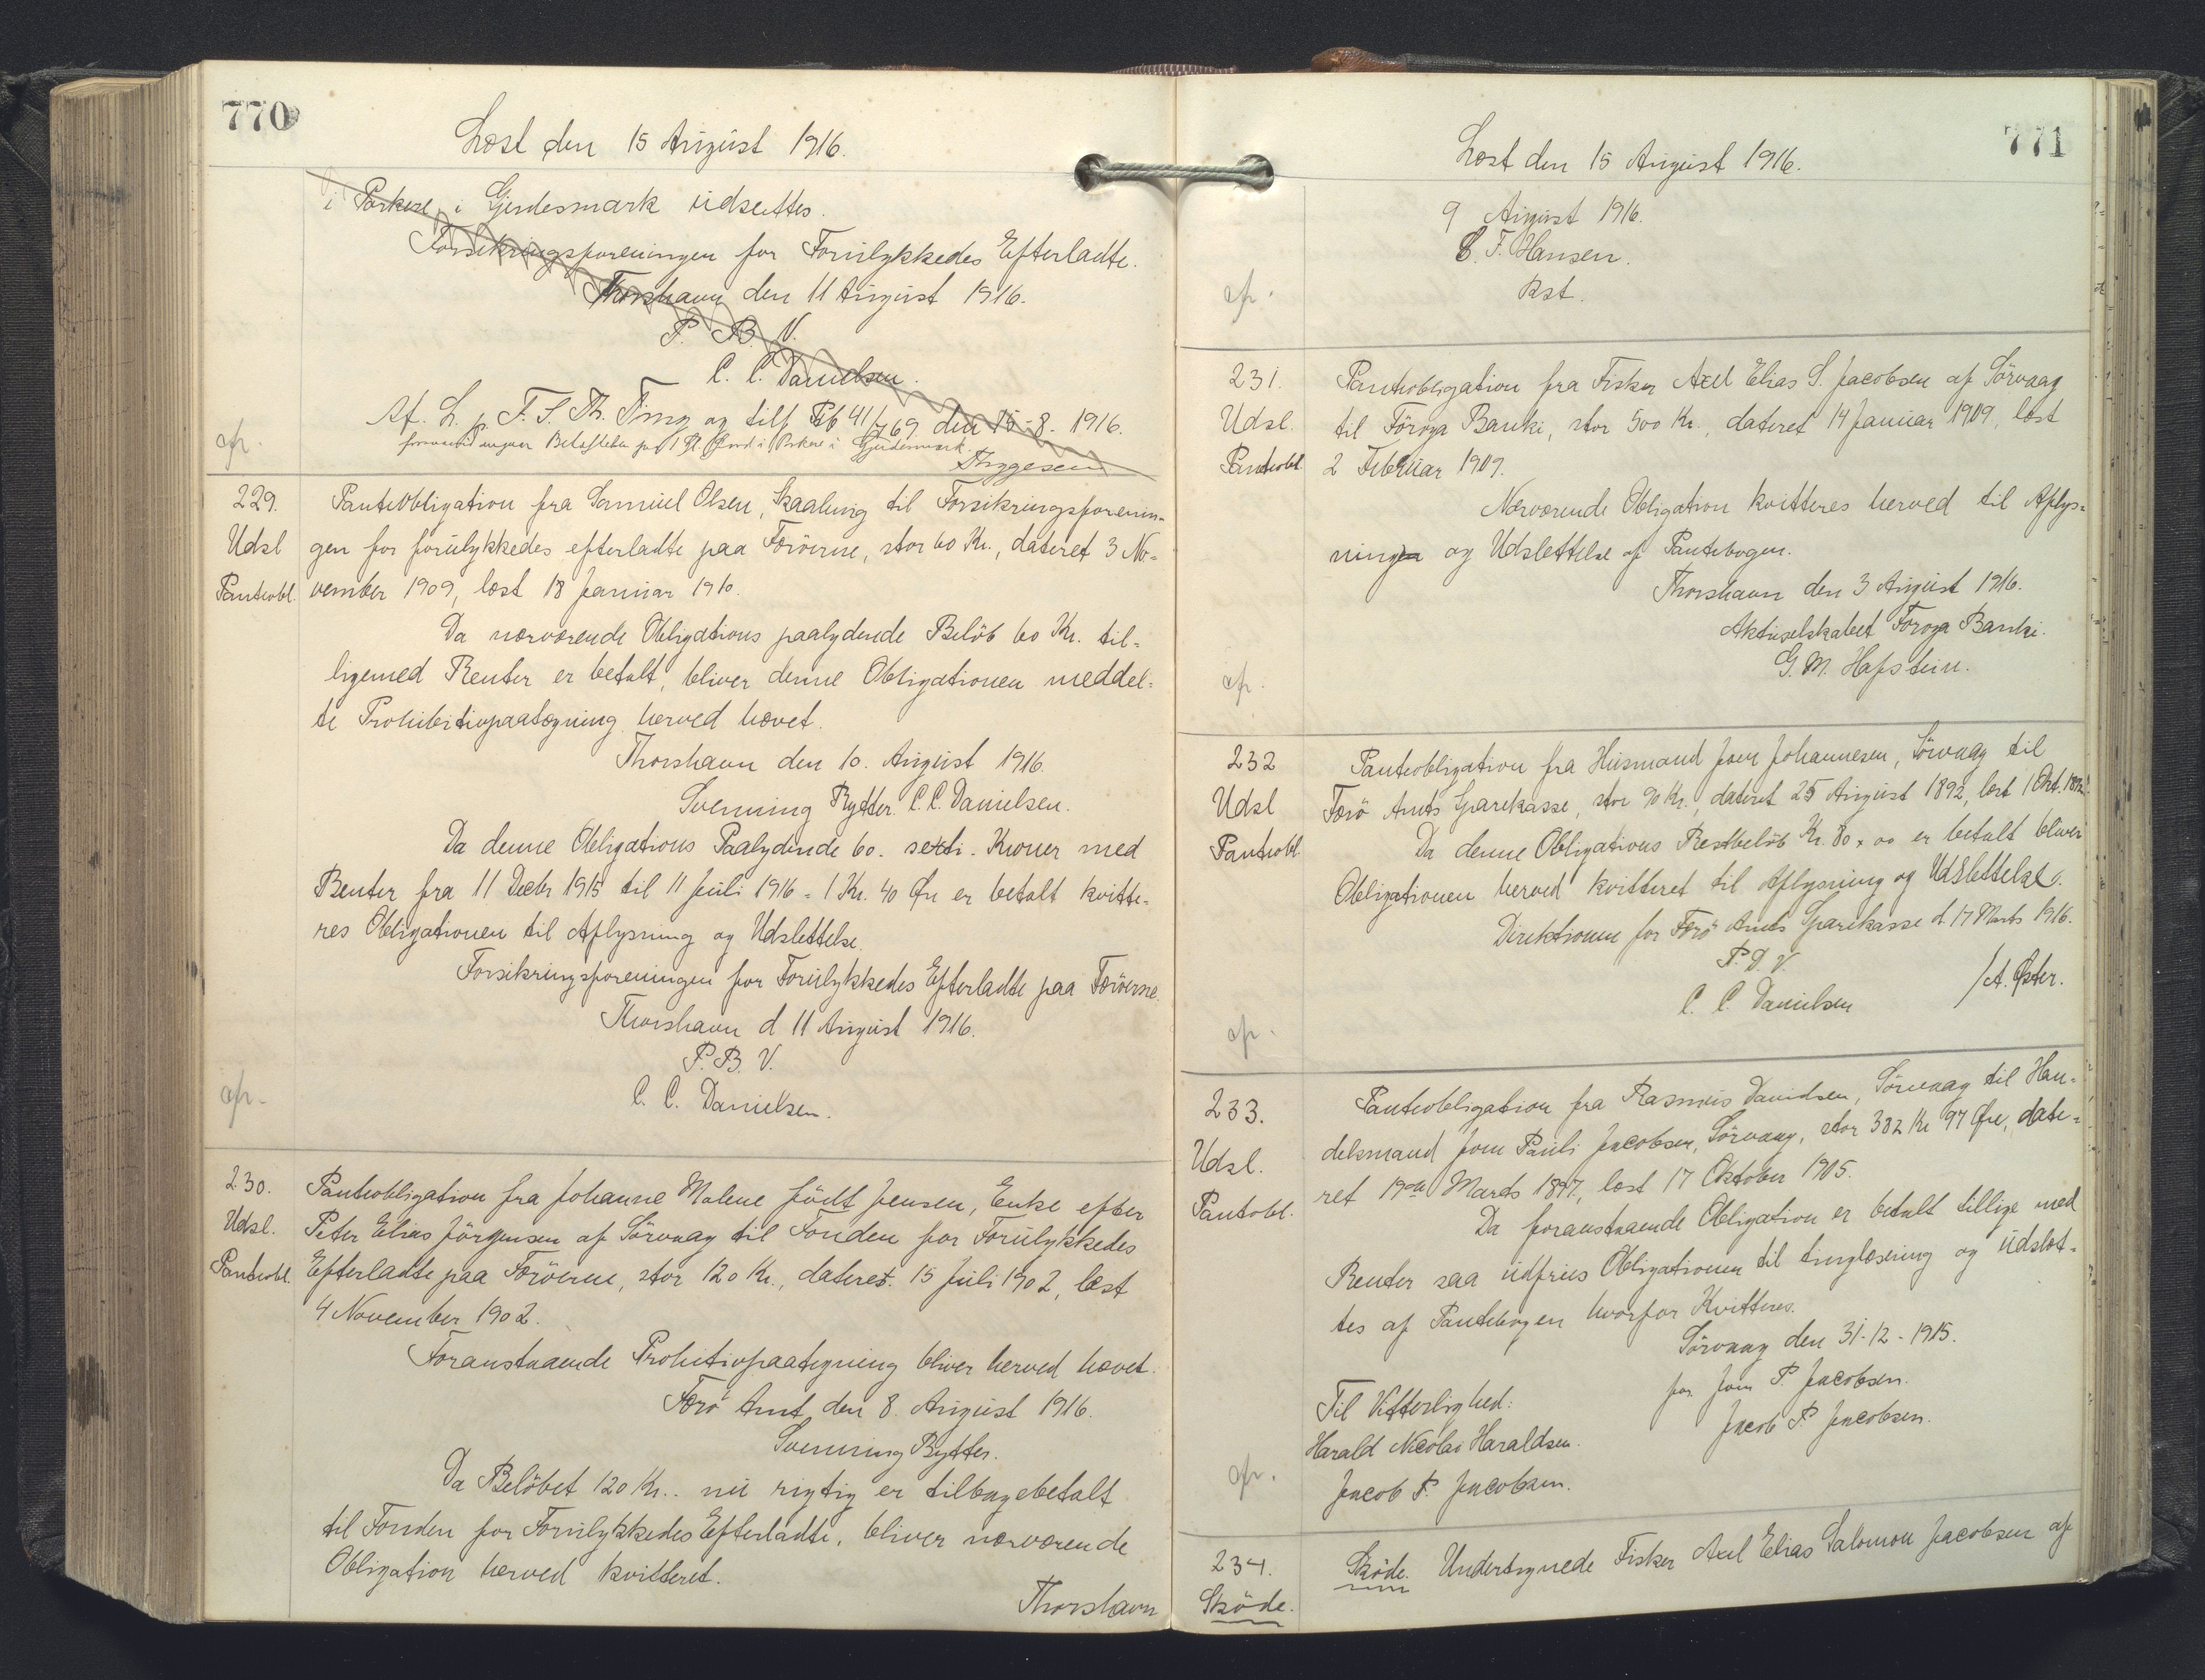 770
Læst den 15 August 1916.
i Porkere i Gjerdesmark udsættes.
Forsikringsforeningen for Forulykkedes Efterladte.
Thorshavn den 11 August 1916.
P. B. V.
C. C. Danielsen.
Af. L. p. F. S. Th. Ting og tilf Pb 41/769 den 15-8-1916.
i Porkere i Gjerdesmark.
Thygesen
cfr.
229.
Udsl
Panteobl.
Panteobligation fra Samuel Olsen, Skaaling til Forsikringsforenin-
gen for forulykkedes efterladte paa Færöerne, stor 60 Kr., dateret 3 No-
vember 1909, læst 18 Januar 1910.
Da nærværende Obligations paalydende Belöb 60 Kr. til-
ligemed Renter er betalt, bliver denne Obligationen meddel-
te Prohibitivpaategning herved hævet.
Thorshavn den 10. August 1916.
Svenning Rytter. C. C. Danielsen.
Da denne Obligations Paalydende 60. sexti. Kroner med
Renter fra 11 Decbr 1915 til 11 Juli 1916 = 1 Kr. 40 Øre er betalt kvitte-
res Obligationen til Aflysning og Udslettelse.
Forsikringsforeningen for Forulykkedes Efterladte paa Færöerne.
Thorshavn d 11 August 1916.
P. B. V.
C. C. Danielsen.
cfr.
230.
Udsl.
Panteobl.
Panteobligation fra Johanne Malene födt Jensen, Enke efter
Peter Elias Jörgensen af Sörvaag til Fonden for Forulykkedes
Efterladte paa Færöerne, stor 120 Kr., dateret. 15 Juli 1902, læst
4 November 1902.
Foranstaaende Prohitivpaategning bliver herved hævet.
Færö Amt den 8. August 1916.
Svenning Rytter.
Da Belöbet 120 Kr.. nu rigtig er tilbagebetalt
til Fonden for Forulykkedes Efterladte, bliver nærværende
Obligation herved kvitteret.
Thorshavn
771
Læst den 15 August 1916.
9 August 1916.
C. F. Hansen.
Kst.
cfr.
231.
Udsl.
Panteobl.
Panteobligation fra Fisker Axel Elias S. Jacobsen af Sörvaag
til Föroya Banki, stor 500 Kr., dateret 14 Januar 1909, læst
2 Februar 1909.
Nærværende Obligation kvitteres herved til Aflys-
ning og Udslettelse af Pantebogen.
Thorshavn den 3 August 1916.
Aktieselskabet Föroya Banki.
G. M. Hafstein.
cfr.
232
Udsl
Panteobl.
Panteobligation fra Husmand Joen Johannesen, Sörvaag til
Færö Amts Sparekasse, stor 90 Kr., dateret 25 August 1892, læst 1 Okt. 1892.
Da denne Obligations Restbelöb Kr. 80 × 00 er betalt bliver
Obligationen herved kvitteret til Aflysning og Udslettelse.
Direktionen for Færö Amts Sparekasse d 17 Marts 1916.
P. D. V.
C. C. Danielsen
/A. Øster.
cfr.
233.
Udsl.
Pantobl.
Panteobligation fra Rasmus Davidsen, Sörvaag til Han-
delsmand Joen Pauli Jacobsen, Sörvaag, stor 382 Kr 97 Øre, date-
ret 19de Marts 1897, læst 17 Oktober 1905.
Da foranstaaende Obligation er betalt tillige med
Renter saa udfries Obligationen til tinglæsning og udslet-
tes af Pantebogen hvorfor Kvitteres.
Sörvaag den 31-12-1915.
for Joen P. Jacobsen.
Jacob P. Jacobsen.
Til Vitterlighed:
Harald Nicolai Haraldsen.
Jacob P. Jacobsen.
cfr.
234.
Sköde.
Sköde. Undertegnede Fisker Axel Elias Salomon Jacobsen af